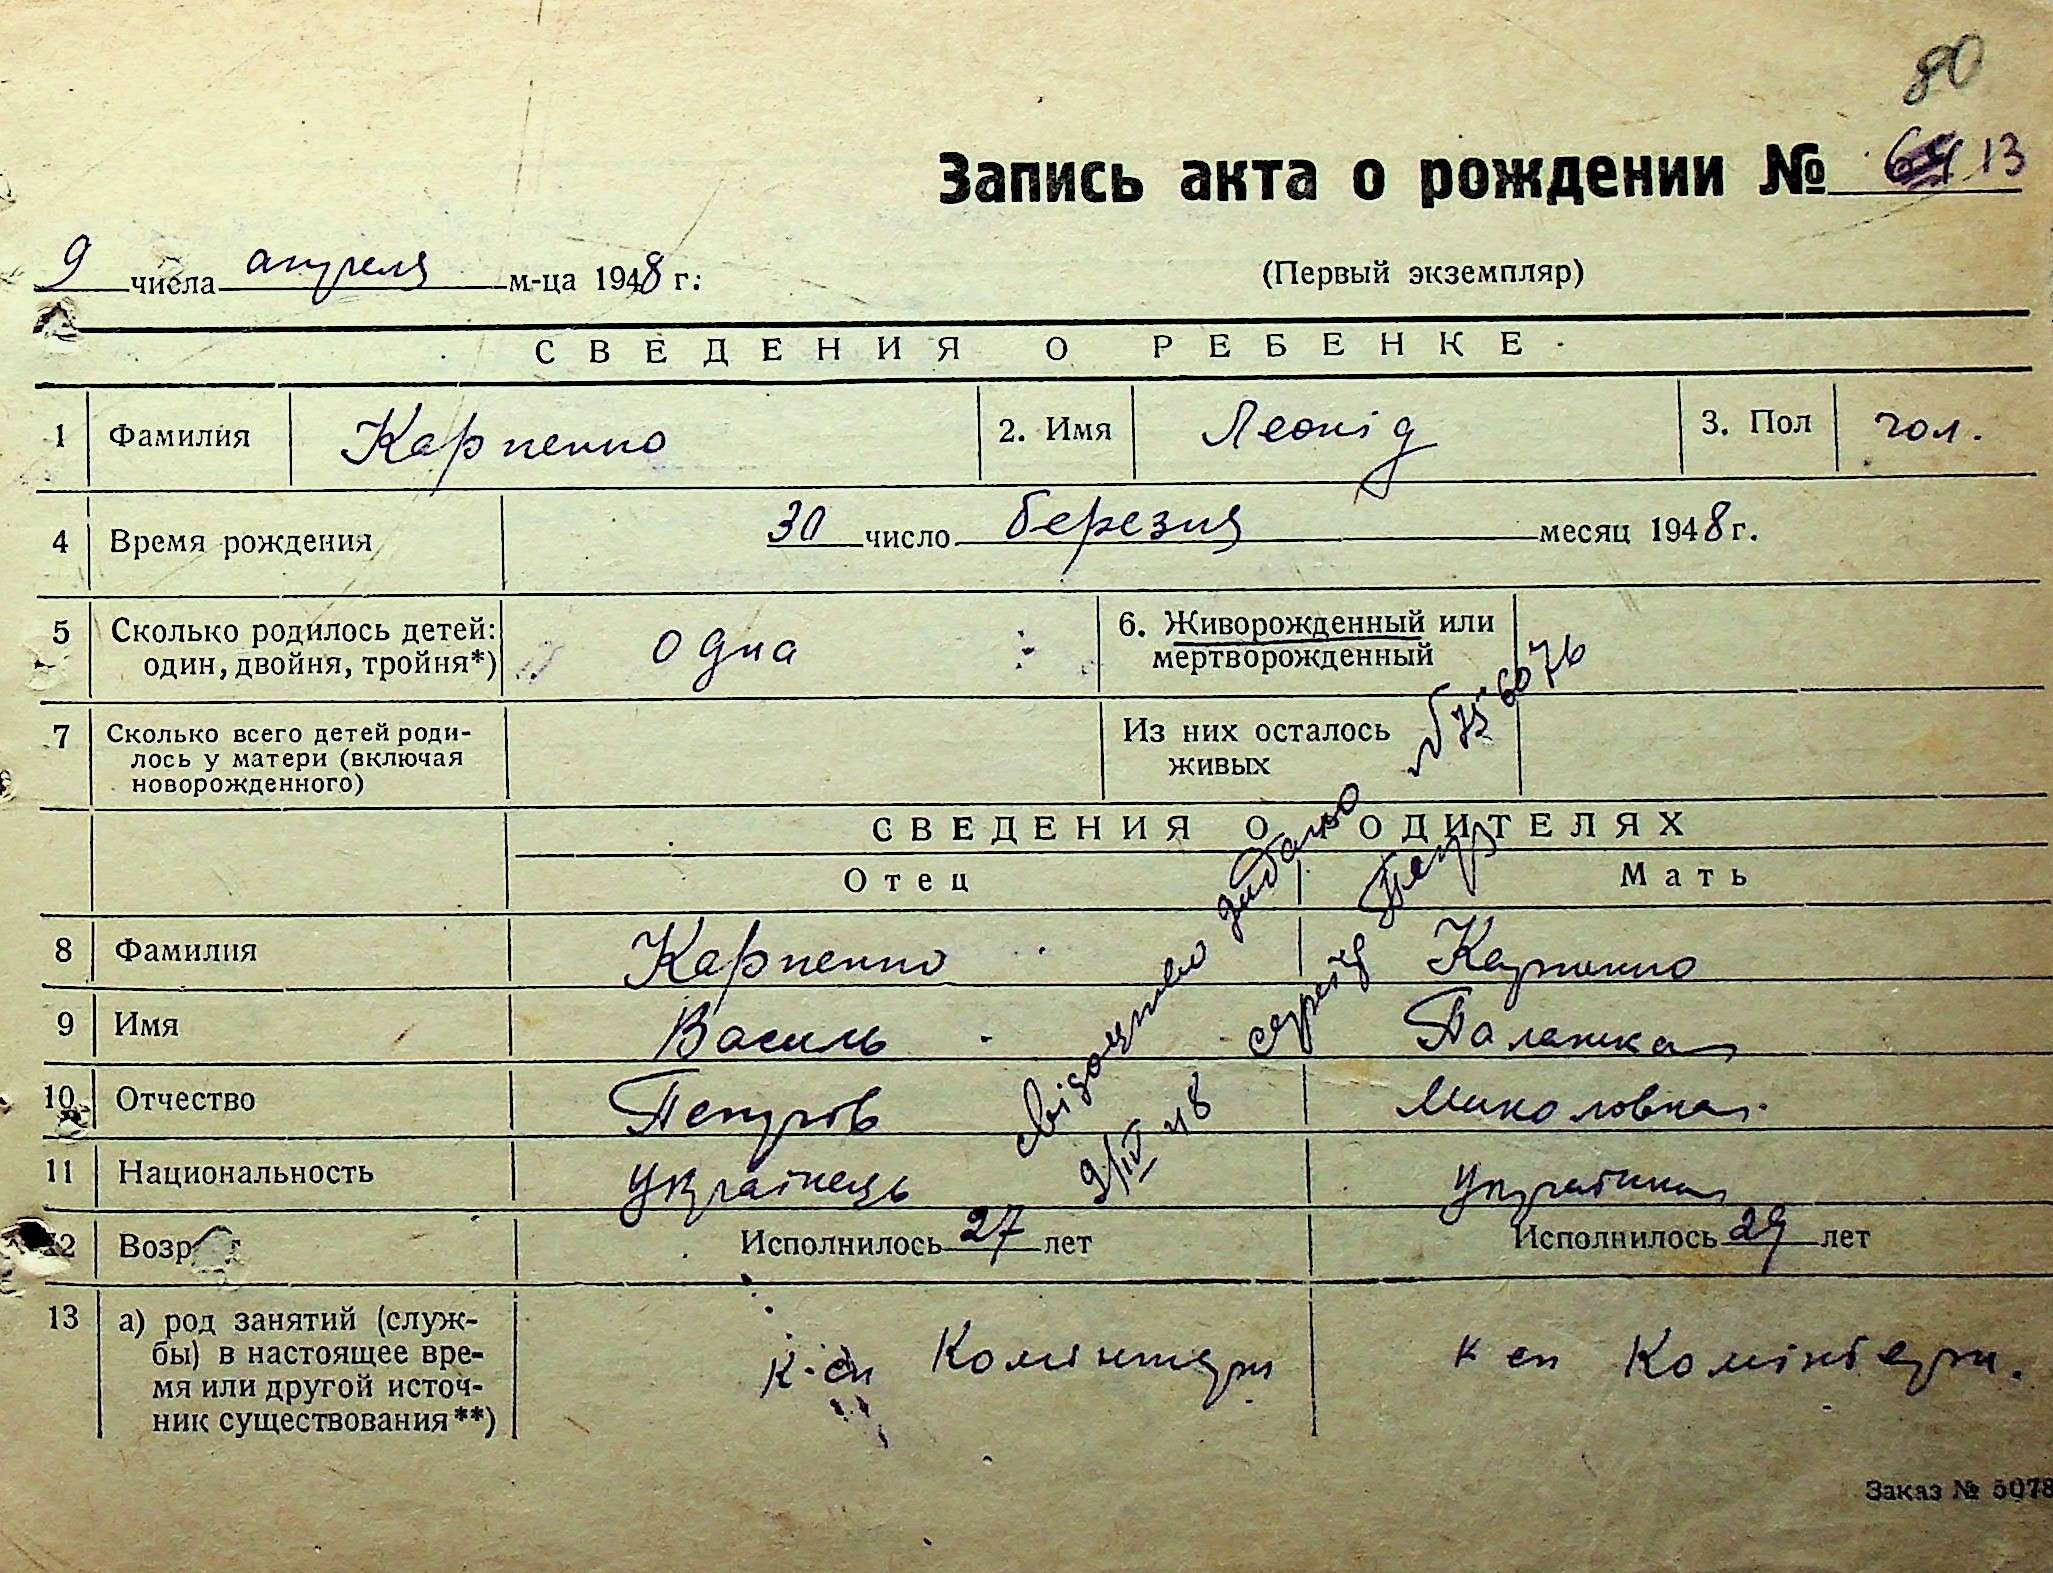 80
Запись акта о рождении № 13
9 числа апреля м-ца 1948 г:
(Первый экземпляр)
СВЕДЕНИЯ О РЕБЕНКЕ
1 Фамилия Карпенко 2. Имя Леонід 3. Пол чол.
4 Время рождения 30 число березня месяц 1948 г.
5 Сколько родилось детей: один, двойня, тройня*) одна 6. Живорожденный или мертворожденный
7 Сколько всего детей родилось у матери (включая новорожденного) Из них осталось живых
СВЕДЕНИЯ О РОДИТЕЛЯХ
Отец Мать
8 Фамилия Карпенко Карпенко
9 Имя Василь Палажка
10 Отчество Петров Миколовна
11 Национальность українець українка
12 Возраст Исполнилось 27 лет Исполнилось 29 лет
13 а) род занятий (служ-
бы) в настоящее вре-
мя или другой источ-
ник существования**)
к-сп Комінтерн к сп Комінтерн.
видано № 6076
серія
9/IV 48
Заказ № 5078